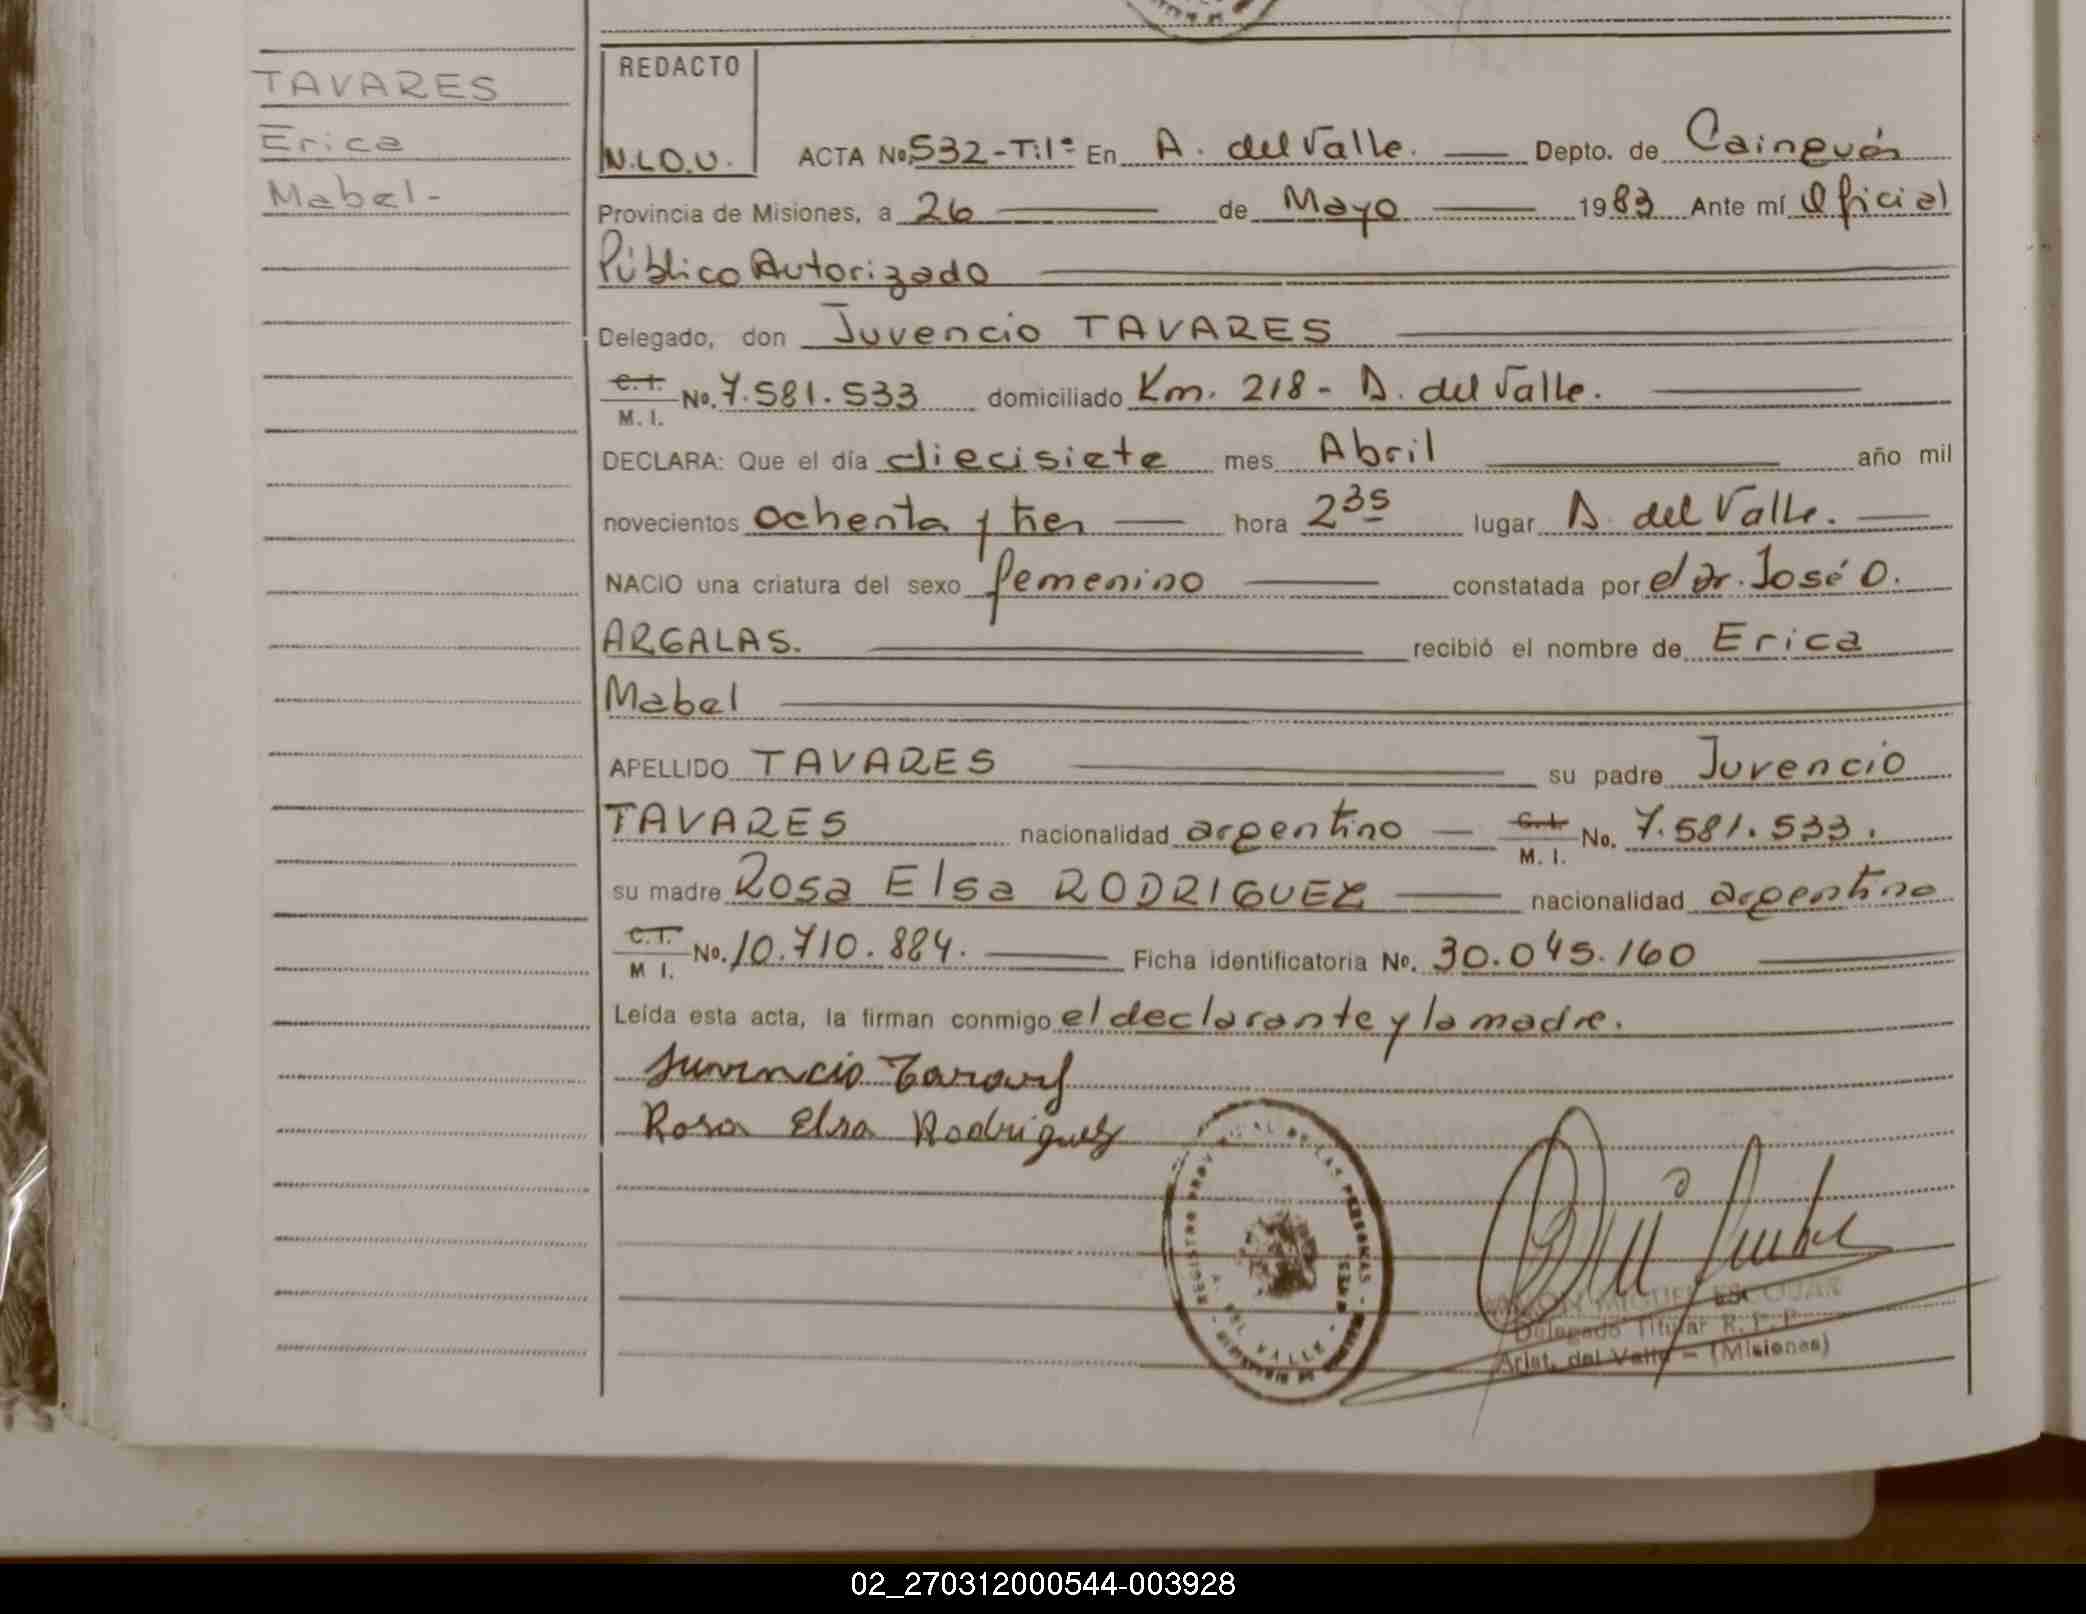 TAVARES
Erica
Mabel-
REDACTO
N.L.O.U.
ACTA No 532-T:1º En A. del Valle. Depto. de Cainguás
Provincia de Misiones, a 26 de Mayo 1983 Ante mí Oficial
Público Autorizado
Delegado, don Juvencio TAVARES
C.I. M. I. No. 7.581.533 domiciliado Km. 218 - A. del Valle.
DECLARA: Que el día diecisiete mes Abril año mil
novecientos ochenta y tres hora 235 lugar A. del Valle.
NACIO una criatura del sexo femenino constatada por el Dr. José O.
ARGALAS. recibió el nombre de Erica
Mabel
APELLIDO TAVARES su padre Juvencio
TAVARES nacionalidad argentino C.I. M. I. No. 7.581.533.
su madre Rosa Elsa RODRIGUEZ nacionalidad argentina
C.I. M I. No. 10.710.884. Ficha identificatoria No. 30.045.160
Leída esta acta, la firman conmigo el declarante y la madre.
Juvencio Tavares
Rosa Elsa Rodriguez
REGISTRO PROVINCIAL DE LAS PERSONAS - A. DEL VALLE - MISIONES
MIGUEL ESCOBAR
Delegado Titular R. P. P.
Arist. del Valle - (Misiones)
02_270312000544-003928